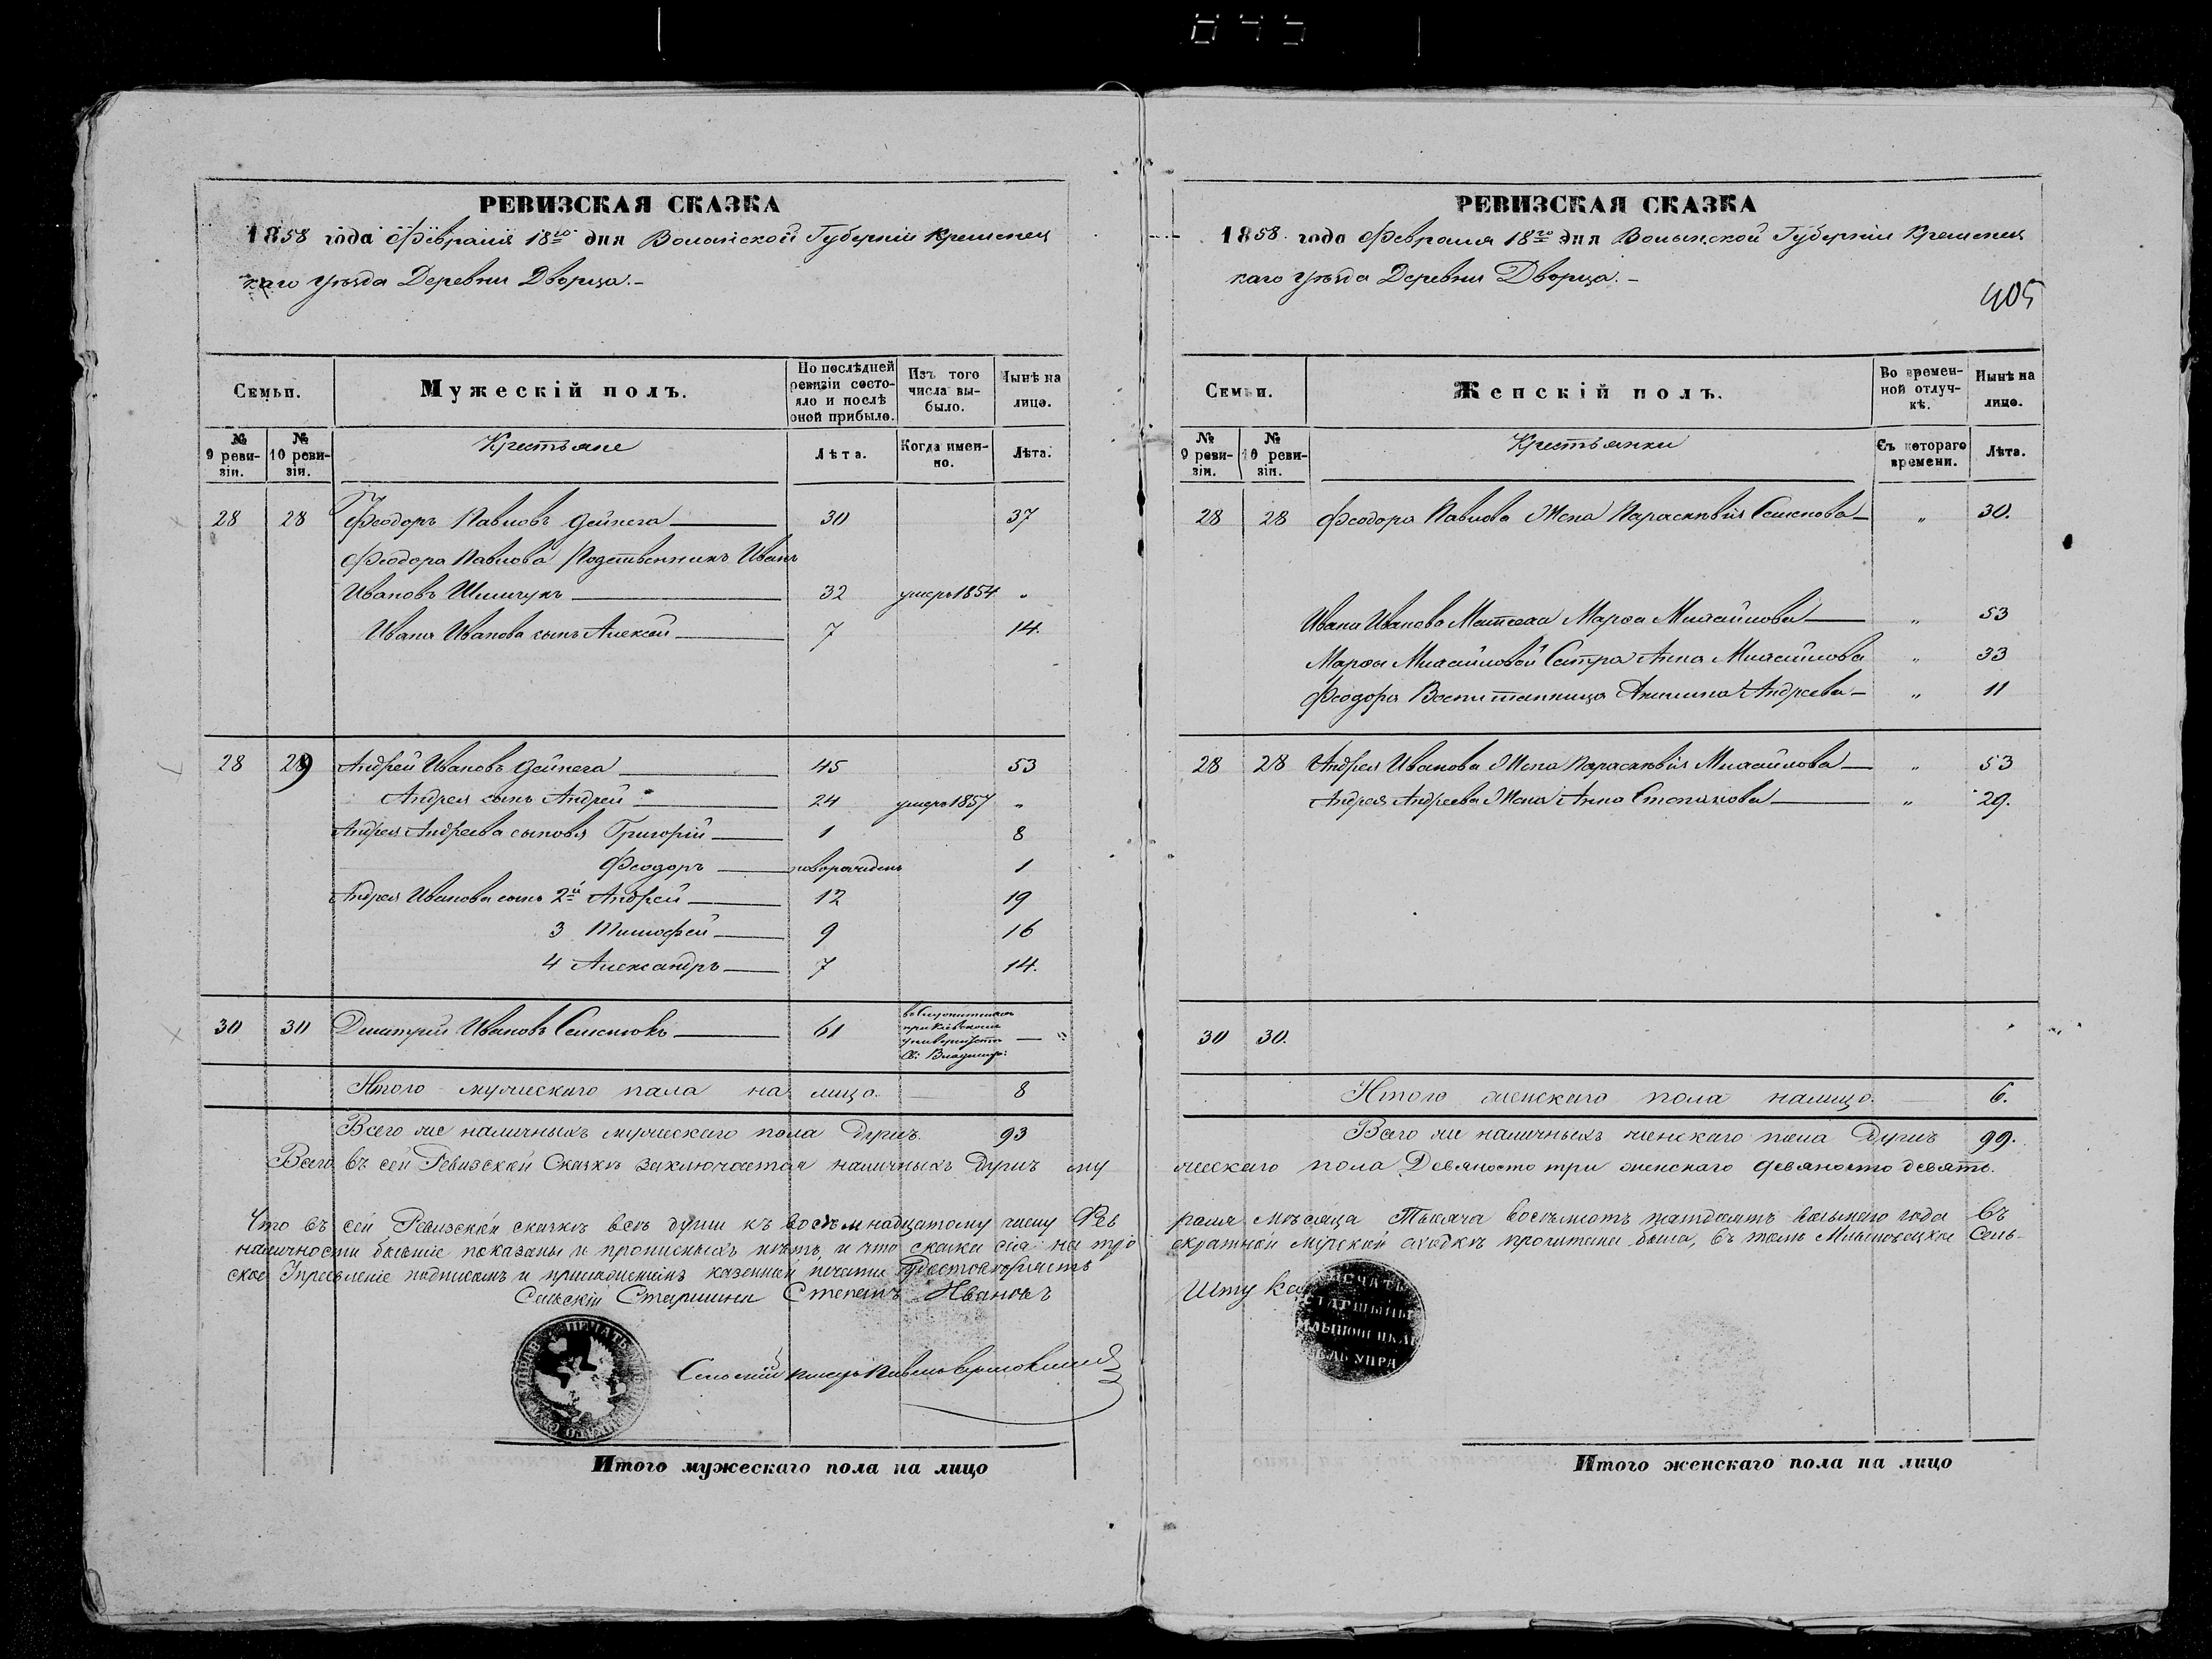 РЕВИЗСКАЯ СКАЗКА
1858 года Февраля 18го дня Волынской Губерніи Кременец
каго уѣзда Деревни Дворца.-
Семьи.
Мужескій полъ.
По послѣдней ревизіи состояло и послѣ оной прибыло.
Изъ того числа выбыло.
Нынѣ на лицо.
№ 9 ревизіи.
№ 10 ревизіи.
Крестьяне
Лѣта.
Когда именно.
Лѣта.
28 28 Феодоръ Павловъ Дейнега 30 37
Феодора Павлова Родственникъ Иванъ
Ивановъ Шимчукъ 32 умеръ 1854 "
Ивана Иванова сынъ Алексей 7 14.
28 29 Андрей Ивановъ Дейнега 45 53
Андрея сынъ Андрей 24 умеръ 1857 "
Андрея Андреева сыновя Григорій 1 8
Феодоръ новорожденъ 1
Андрея Иванова сынъ 2й Андрей 12 19
3 Тимофей 9 16
4 Александръ 7 14.
30 30 Дмитрій Ивановъ Семенюкъ 61
при Кіевскомъ
университетѣ
Св: Владимір: — "
Итого мужескаго пола на лицо. 8
Всего же наличныхъ мужескаго пола душъ. 93
Всего въ сей Ревизской Сказкѣ заключается наличныхъ душъ му
Что въ сей Ревизской сказкѣ всѣ души къ восемнадцатому числу Фев
наличности бывшіе показаны и прописныхъ нѣтъ, и что сказка сія на тріо
ское Управленіе подписомъ и приложеніемъ казенной печати удостовѣряетъ
Сельскій Старшина Степанъ Ивановъ
ПЕЧАТЬ
Сельскій писарь Павелъ
Итого мужескаго пола на лицо
РЕВИЗСКАЯ СКАЗКА
1858 года Февраля 18го дня Волынской Губерніи Кременец
каго уѣзда Деревни Дворца.-
405
Семьи.
Женскій полъ.
Во временной отлучкѣ.
Нынѣ на лицо.
№ 9 ревизіи.
№ 10 ревизіи.
Крестьянки
Съ котораго времени.
Лѣта.
28 28 Феодора Павлова Жена Параскевія Семенова " 30.
Ивана Иванова Матеха Марѳа Михайлова " 53
Марѳы Михайловой Сестра Анна Михайлова " 33
Феодора Воспитанница Акилина Андреева " 11
28 28 Андрея Иванова Жена Параскевія Михайлова " 53
Андрея Андреева Жена Анна Степанова " 29.
30 30.
Итого женскаго пола налицо. 6.
Всего же наличныхъ женскаго пола душъ 99.
жескаго пола Девяносто три женскаго девяносто девять.
раля мѣсяца Тысяча восемьсотъ пятдесятъ восьмого года въ
екратной мірской сходкѣ прочитана была, въ томъ Сель-
ПЕЧАТЬ
СТАРШЫНЫ
УПРА
Итого женскаго пола на лицо